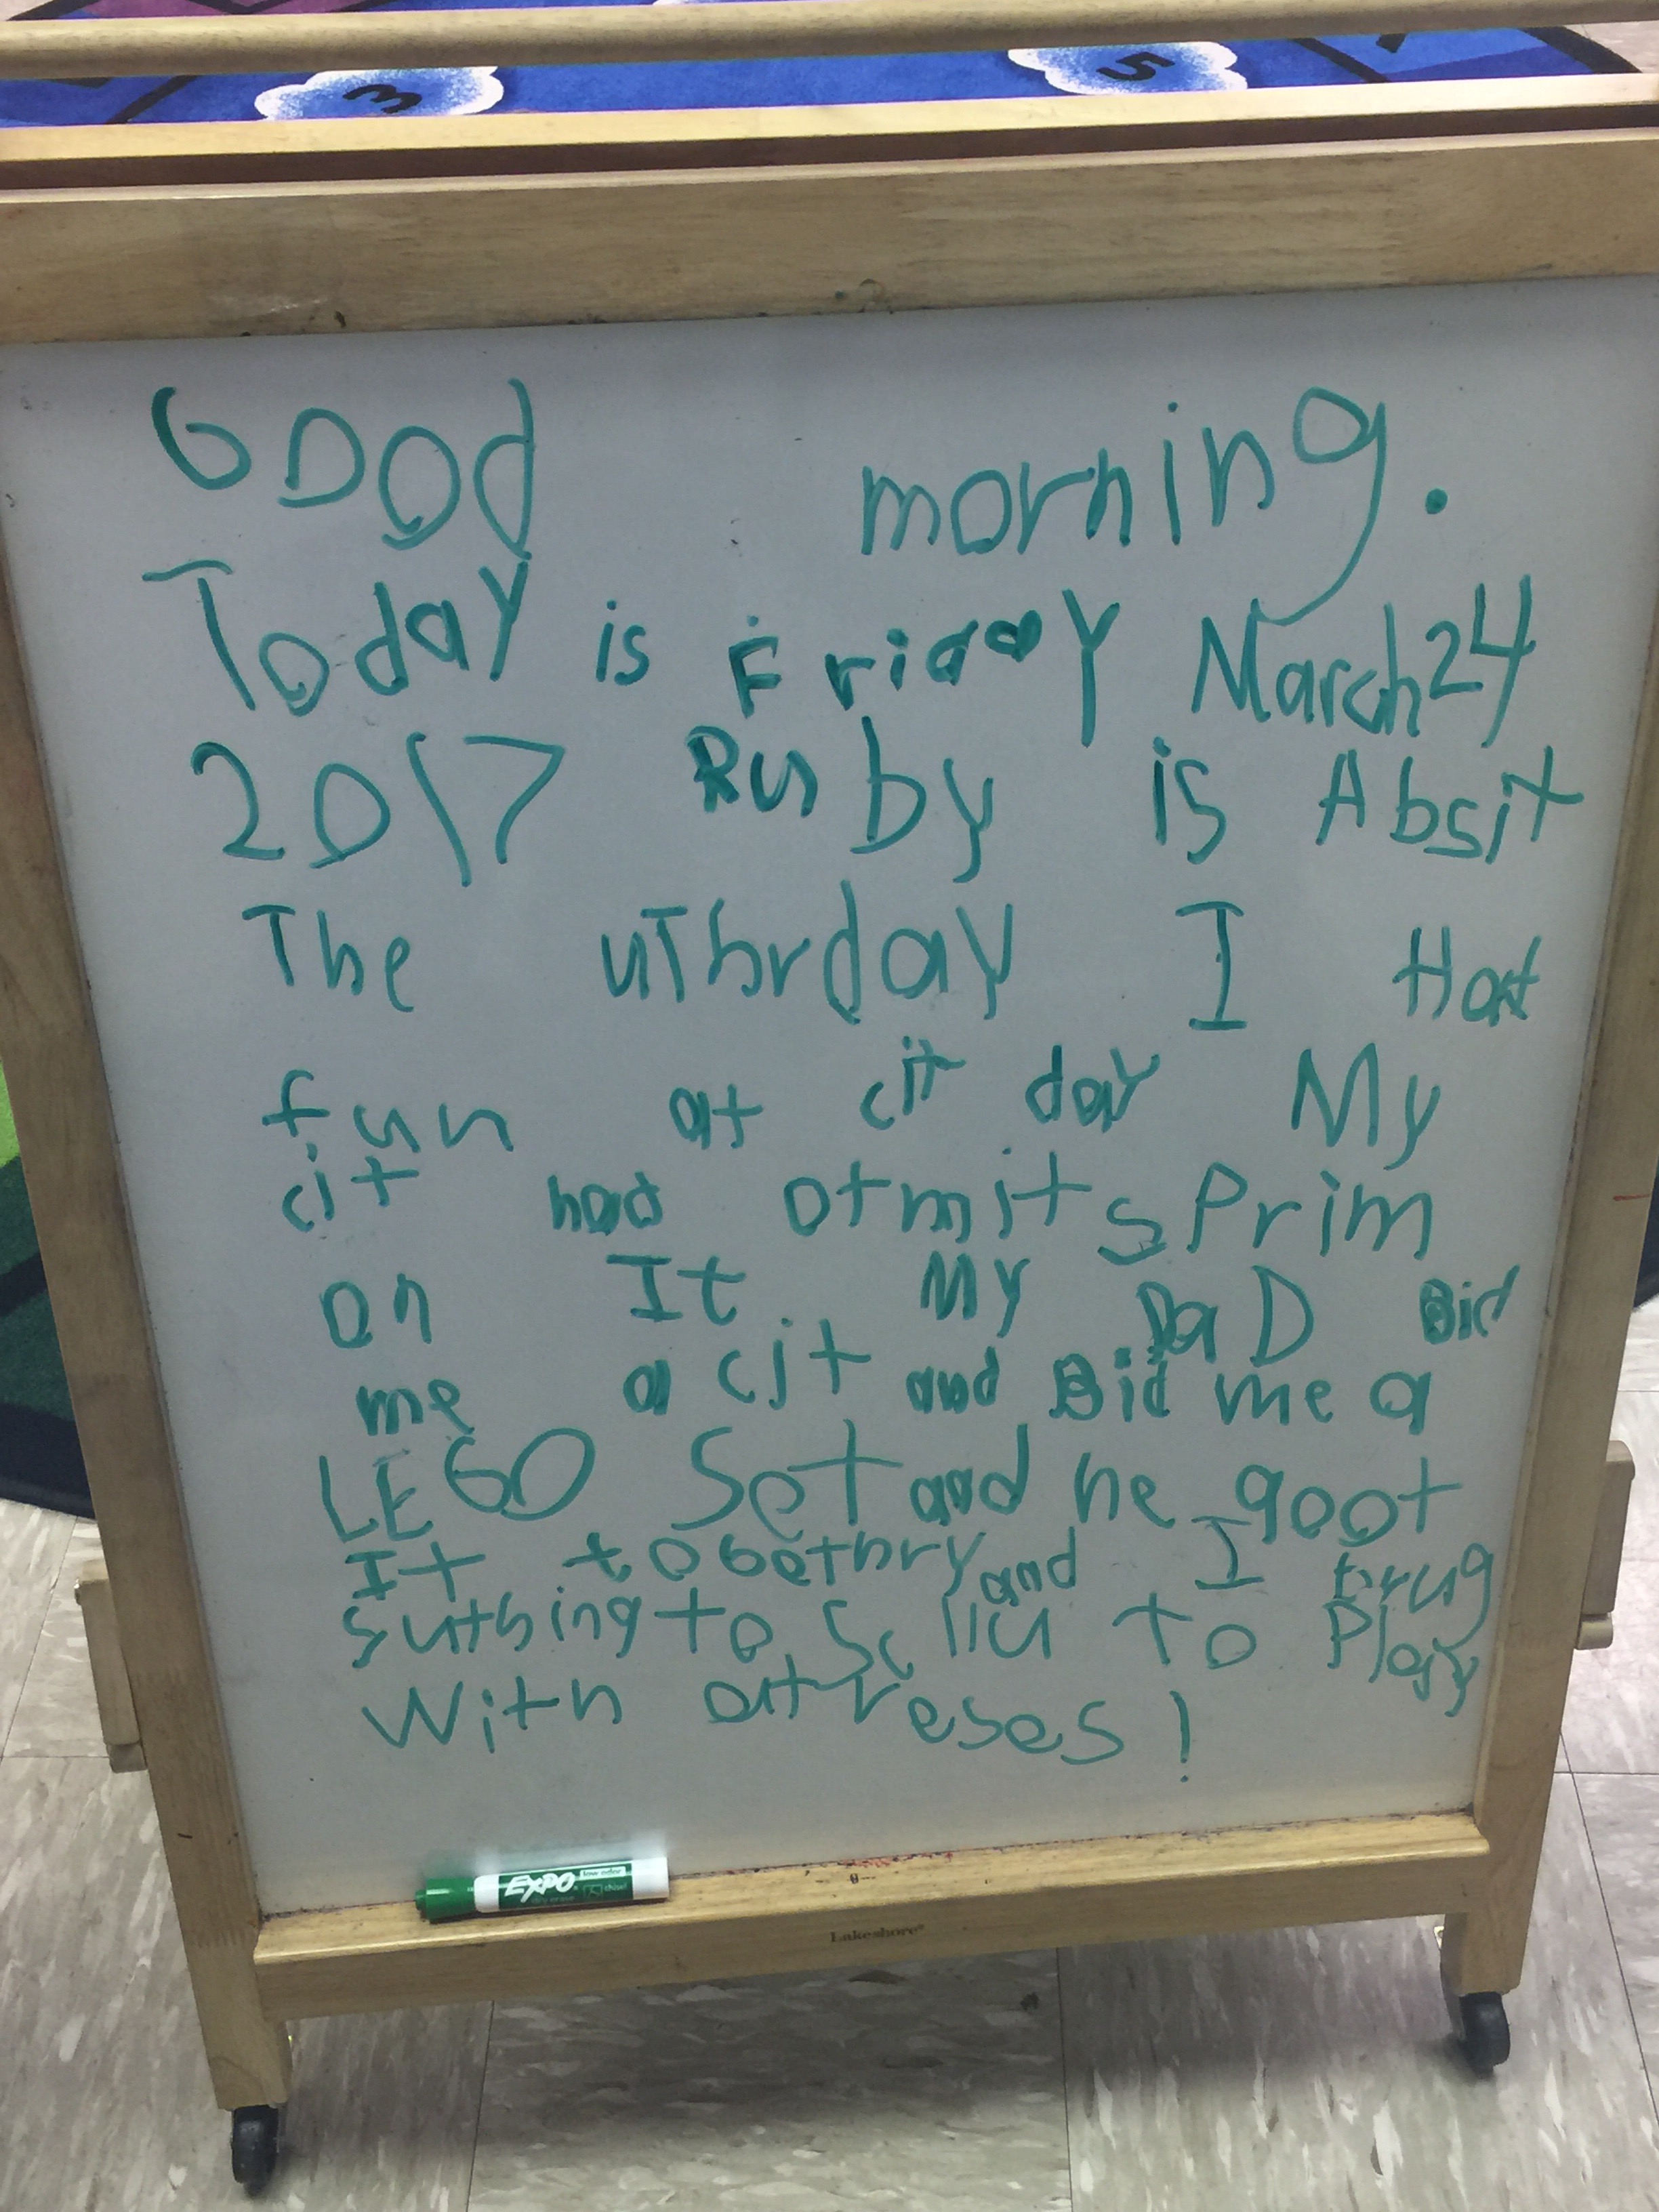 3 5
Good morning.
Today is Friday March 24
2017 Ruby is Absit
The uThrday I Hat
fun at cit day My
cit had otmit sPrim
on It My DaD Bid
me a cit and Bid me a
LEGO Set and he goot
It togethry and I brug
suthing to Scllu to Play
With at reses!
EXPO low odor chisel
Lakeshore